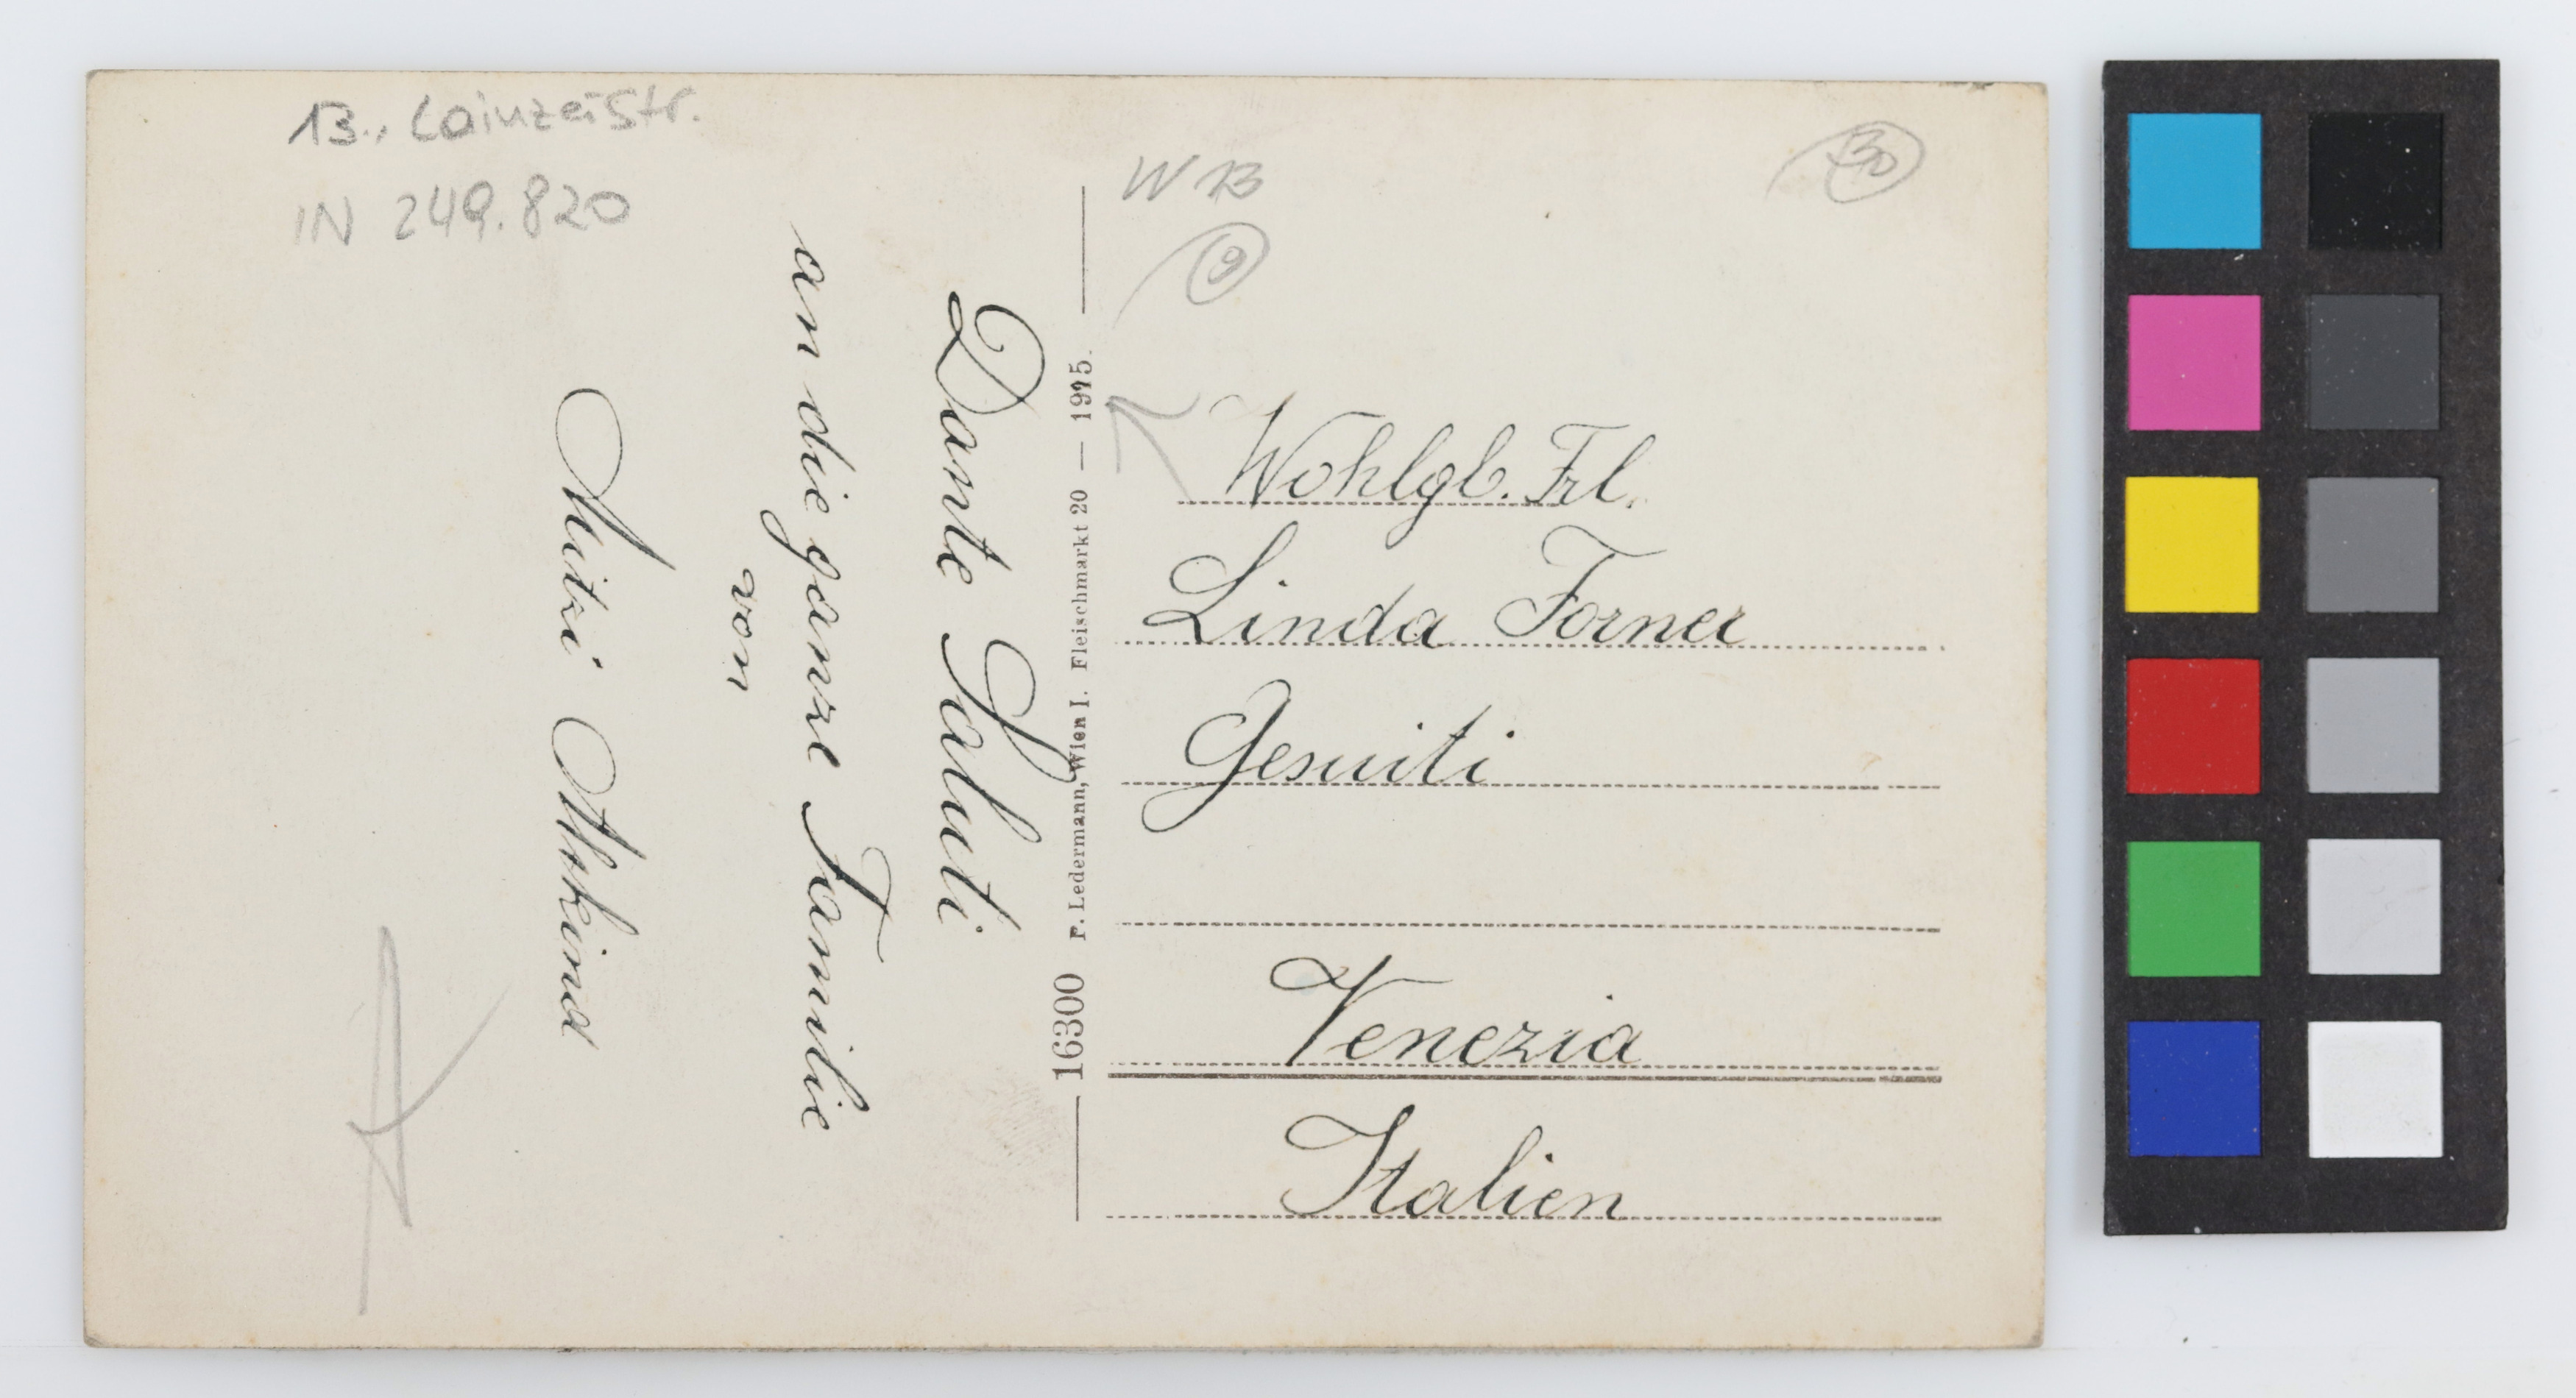 13., Lainzerstr.
IN 249.820
Dante Saluti
an die ganze Familie
von
Mitzi
16300 P. Ledermann, Wien I. Fleischmarkt 20 — 1915.
W 13
9
30
Wohlgb. Frl.
Linda Forner
Gesuiti
Venezia
Italien